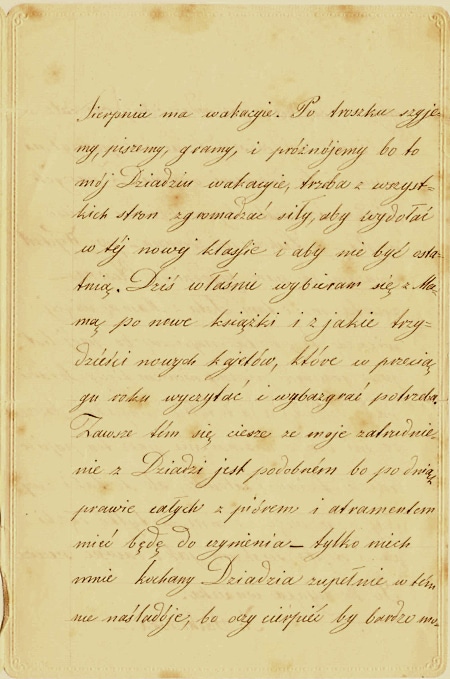 Sierpnia ma wakacyie. Po troszku szyje-
my, piszemy, gramy, i próżnójemy bo to
mój Dziadziu wakacyie, trzba z wszyst-
kich stron zgromadzać siły, aby wydołać
w téj nowej klassie i aby nie być osta-
tnią. Dziś właśnie wybieram się z Ma-
mą po nowe książki i z jakie trzy-
dzieści nowych kajetów, które w przecią
gu roku wyczytać i wybazgrać potrzba.
Zawsze tém się ciesze ze moje zatrudnie-
nie z Dziadzi jest podobném bo po dnią
prawie całych z piórem i atramentem
mieć będę do czynienia – tylko niech
mnie kochany Dziadzia zupełnie w tém
nie naśladóje, bo oczy cierpieć by bardzo mo-